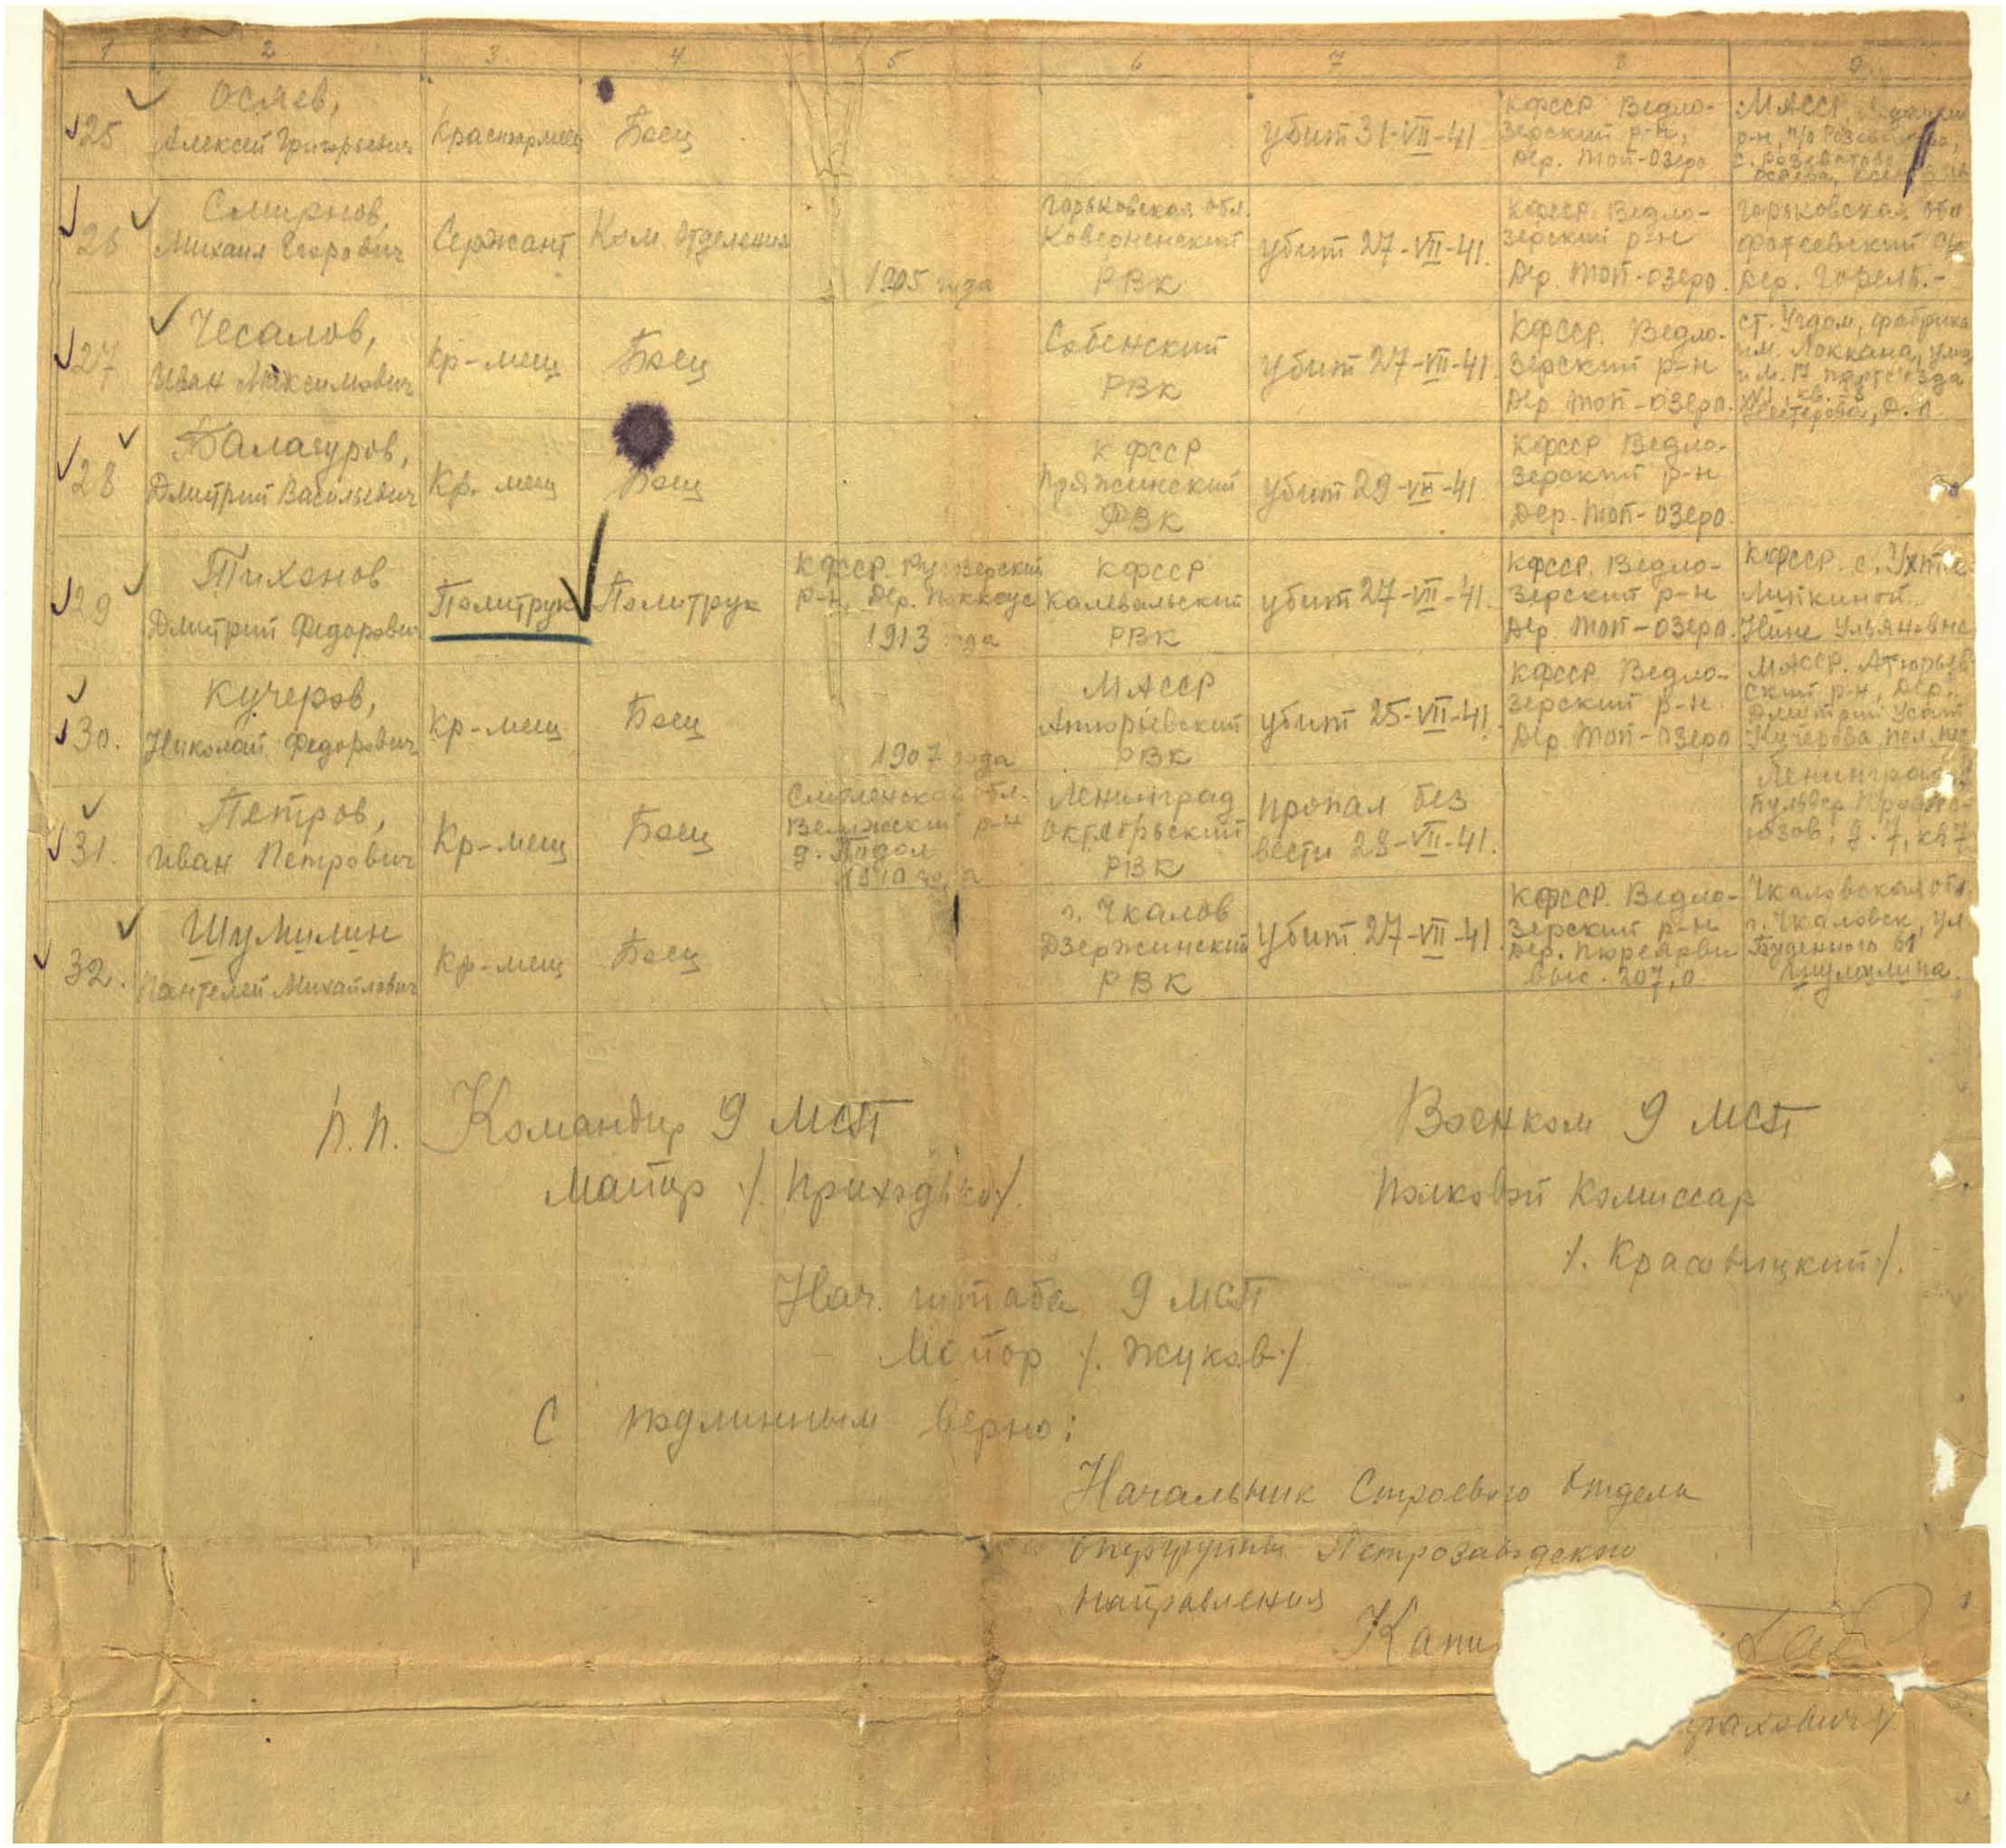 1 2 3 4 5 6 7 8 9
25 Осяев,
Алексей Григорьевич
Красноармеец
Боец
убит 31-VII-41
КФССР Ведло-
зерский р-н,
Дер. Топ-озеро
МАССР
р-н, п/о
с.
26 Смирнов,
Михаил Егорович
Сержант
Ком. Отделения
1905 года
Горьковская обл.
Ковернинский
РВК
убит 27-VII-41.
КФССР. Ведло-
зерский р-н
Дер. Топ-озеро.
Горьковская обл
Фатеевский
Дер. Горель.-
27 Чесалов,
Иван Максимович
Кр-меец
Боец
Собенский
РВК
убит 27-VII-41.
КФССР. Ведло-
зерский р-н
Дер Топ-озеро.
ст. Угдом, фабрика
им. Локкана, улица
им. 17 партс'езда
кв. 8
Нестерова, А. П
28 Балагуров,
Дмитрий Васильевич
Кр. меец
Боец
КФССР
Пряжинский
РВК
убит 29-VII-41
КФССР Ведло-
зерский р-н
Дер. Топ-озеро.
29 Тихонов
Дмитрий Федорович
Политрук
Политрук
КФССР. Ругозерский
р-н, Дер.
1913 года
КФССР
Калевальский
РВК
убит 27-VII-41.
КФССР. Ведло-
зерский р-н
Дер. Топ-озеро.
КФССР. с. Ухта
Липкиной
Нине Ульяновне
30. Кучеров,
Николай Федорович
Кр-меец
Боец
1907 года
МАССР
Атюрьевский
РВК
убит 25-VII-41.
КФССР. Ведло-
зерский р-н.
Дер. Топ-озеро
МАССР. Атюрьев-
ский р-н, Дер.
Дмитрий Усат
Кучерова
31. Петров,
Иван Петрович
Кр-меец
Боец
Смоленская обл.
Велижский р-н
д. Подол
1910 года
Ленинград
Октябрьский
РВК
пропал без
вести 28-VII-41.
Ленинград,
бульвар Профсо-
юзов, д. 7, кв 7
32. Шумилин
Пантелей Михайлович
Кр-меец
Боец
г. Чкалов
Дзержинский
РВК
убит 27-VII-41
КФССР. Ведло-
зерский р-н
Дер. Пюреярви
выс. 207,0
Чкаловская обл
г. Чкаловск, ул
Буденного 61
Шумилина.
п.п. Командир 9 МСП
Майор /. Приходько/.
Военком 9 МСП
Полковой Комиссар
/. Красовицкий/.
Нач. штаба 9 МСП
Майор /. Жуков./
С подлинным верно:
Начальник Строевого Отдела
опергруппы Петрозаводского
направления
Капи